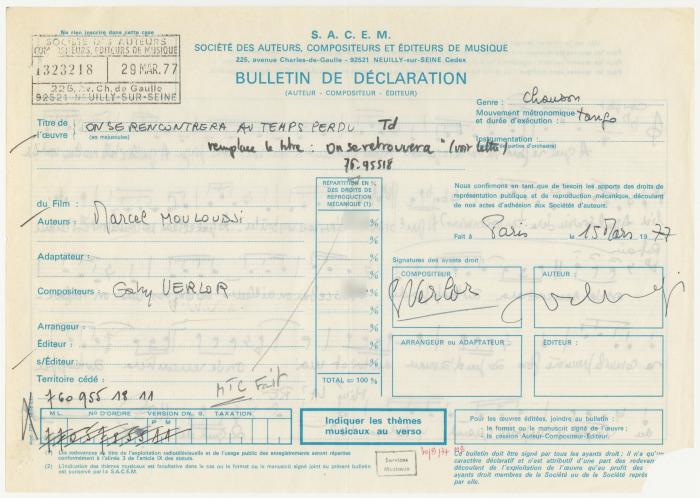 Ne rien inscrire dans cette case
SOCIÉTÉ DES AUTEURS
COMPOSITEURS, ÉDITEURS DE MUSIQUE
1323218 29 MAR. 77
225, Av. Ch. de Gaulle
92521 NEUILLY-SUR-SEINE
S. A. C. E. M.
SOCIÉTÉ DES AUTEURS, COMPOSITEURS ET ÉDITEURS DE MUSIQUE
225, avenue Charles-de-Gaulle - 92521 NEUILLY-SUR-SEINE Cedex
BULLETIN DE DÉCLARATION
(AUTEUR - COMPOSITEUR - ÉDITEUR)
Genre : Chanson
Mouvement métronomique
et durée d'exécution : Tango
Instrumentation :
Titre de
l'œuvre : ON SE RENCONTRERA AU TEMPS PERDU Td
(en majuscules)
remplace le titre : On se retrouvera" (voir lettre)
76.95518
RÉPARTITION EN %
DES DROITS DE
REPRODUCTION
MÉCANIQUE (1)
du Film :
Auteurs : Marcel MOULOUDJI
Adaptateur :
Compositeurs : Gaby VERLOR
Arrangeur :
Éditeur :
s/Éditeur :
Territoire cédé :
%
%
%
%
%
%
%
%
TOTAL = 100 %
MTC Fait
Nous confirmons en tant que de besoin les apports des droits de
représentation publique et de reproduction mécanique, découlant
de nos actes d'adhésion aux Sociétés d'auteurs.
Fait à Paris le 15 Mars 1977
Signatures des ayants droit :
COMPOSITEUR : AUTEUR :
Verlor
ARRANGEUR OU ADAPTATEUR : ÉDITEUR :
760 955 18 11
M L. N° D'ORDRE VERSION DN. 9. TAXATION.
P U
Indiquer les thèmes
musicaux au verso
Pour les œuvres éditées, joindre au bulletin :
le format ou le manuscrit signé de l'œuvre ;
la cession Auteur-Compositeur-Éditeur.
Les redevances au titre de l'exploitation radiotélévisuelle et
et de l'usage public des enregistrements seront réparties
conformément à l'alinéa 3 de l'article IX des statuts.
(2) L'indication des thèmes musicaux est facultative dans le cas où le format ou le manuscrit signé joint au présent bulletin
est conservé par la S.A.C.E.M.
Services
Musicaux
Ce bulletin doit être signé par tous les ayants droit ; il n'a qu'un
caractère déclaratif et n'est attributif d'une part des redevances
découlant de l'exploitation de l'œuvre qu'au profit des
ayants droit membres de la SACEM ou d'une Société représentée
par elle.